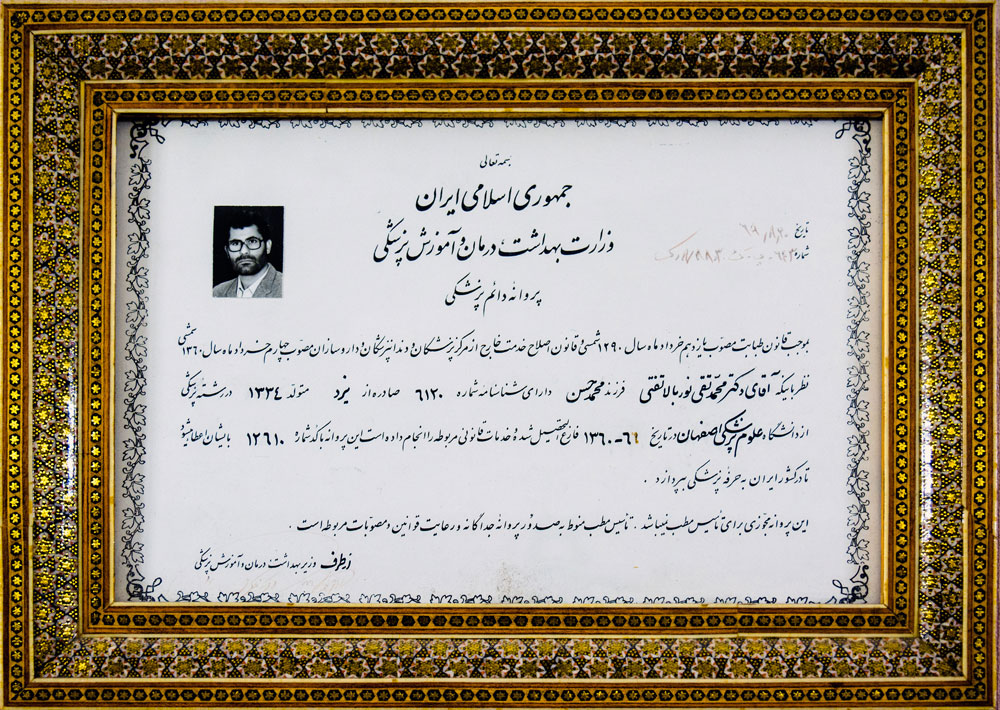 بسمه تعالی
جمهوری اسلامی ایران
وزارت بهداشت، درمان و آموزش پزشکی
تاریخ
شماره
پروانه دائم پزشکی
بموجب قانون طبابت مصوب یازدهم خرداد ماه سال ۱۲۹۰ شمسی و قانون اصلاح خدمت خارج از مرکز پزشکان و دندانپزشکان و داروسازان مصوب چهارم خرداد ماه سال ۱۳۶۰ شمسی
نظر باینکه آقای دکتر محمد تقی نوربالا تفتی فرزند محمد حسن دارای شناسنامه شماره ۶۱۲۰ صادره از یزد متولد ۱۳۳۴ در رشته پزشکی
از دانشگاه علوم پزشکی اصفهان در تاریخ فارغ التحصیل شده و خدمات قانونی مربوطه را انجام داده است این پروانه با کد شماره ۱۲۶۱۰ بایشان اعطا میشود
تا در کشور ایران به حرفه پزشکی بپردازد .
این پروانه مجوزی برای تاسیس مطب نمیباشد . تاسیس مطب منوط به صدور پروانه جداگانه و رعایت قوانین و مصوبات مربوطه است .
از طرف وزیر بهداشت، درمان و آموزش پزشکی